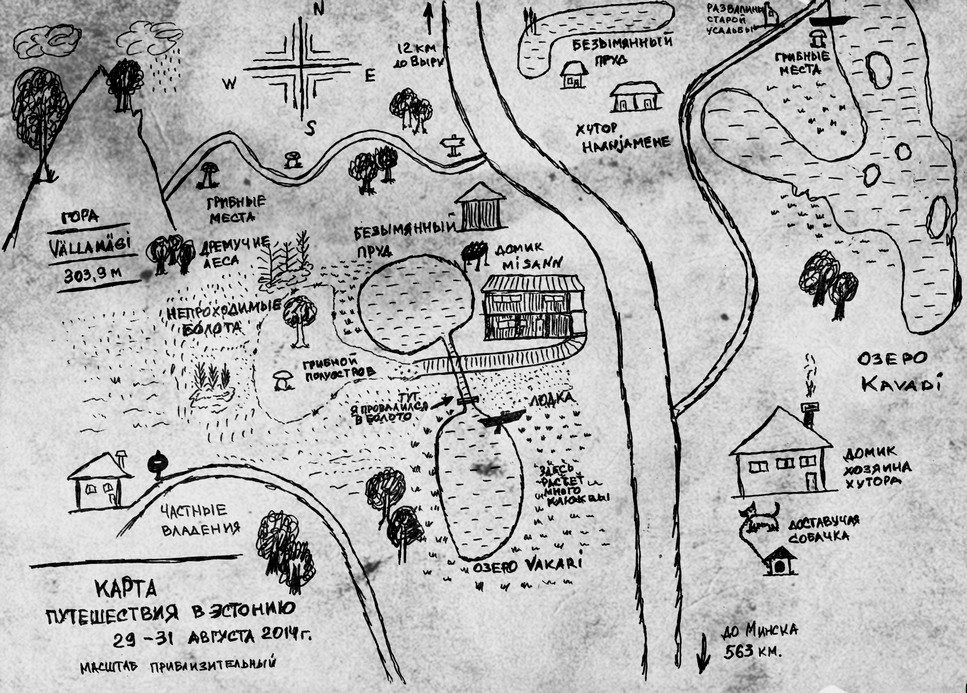 N
W
E
S
12 км
до Выру
БЕЗЫМЯННЫЙ
ПРУД
РАЗВАЛИНЫ
СТАРОЙ
УСАДЬБЫ
ГРИБНЫЕ
МЕСТА
ХУТОР
ГРИБНЫЕ
МЕСТА
ГОРА
VÄLLAMÄGI
303,9 м
ДРЕМУЧИЕ
ЛЕСА
БЕЗЫМЯННЫЙ
ПРУД
ДОМИК
MISANN
НЕПРОХОДИМЫЕ
БОЛОТА
ГРИБНОЙ
ПОЛУОСТРОВ
ТУТ
Я ПРОВАЛИЛСЯ
В БОЛОТО
ЛОДКА
ОЗЕРО
KAVADI
ЗДЕСЬ
РАСТЕТ
МНОГО
КЛЮКВЫ
ДОМИК
ХОЗЯИНА
ХУТОРА
ЧАСТНЫЕ
ВЛАДЕНИЯ
ДОСТАВУЧАЯ
СОБАЧКА
ОЗЕРО VAKARI
КАРТА
ПУТЕШЕСТВИЯ В ЭСТОНИЮ
29-31 АВГУСТА 2014г.
МАСШТАБ ПРИБЛИЗИТЕЛЬНЫЙ
ДО МИНСКА
563 КМ.